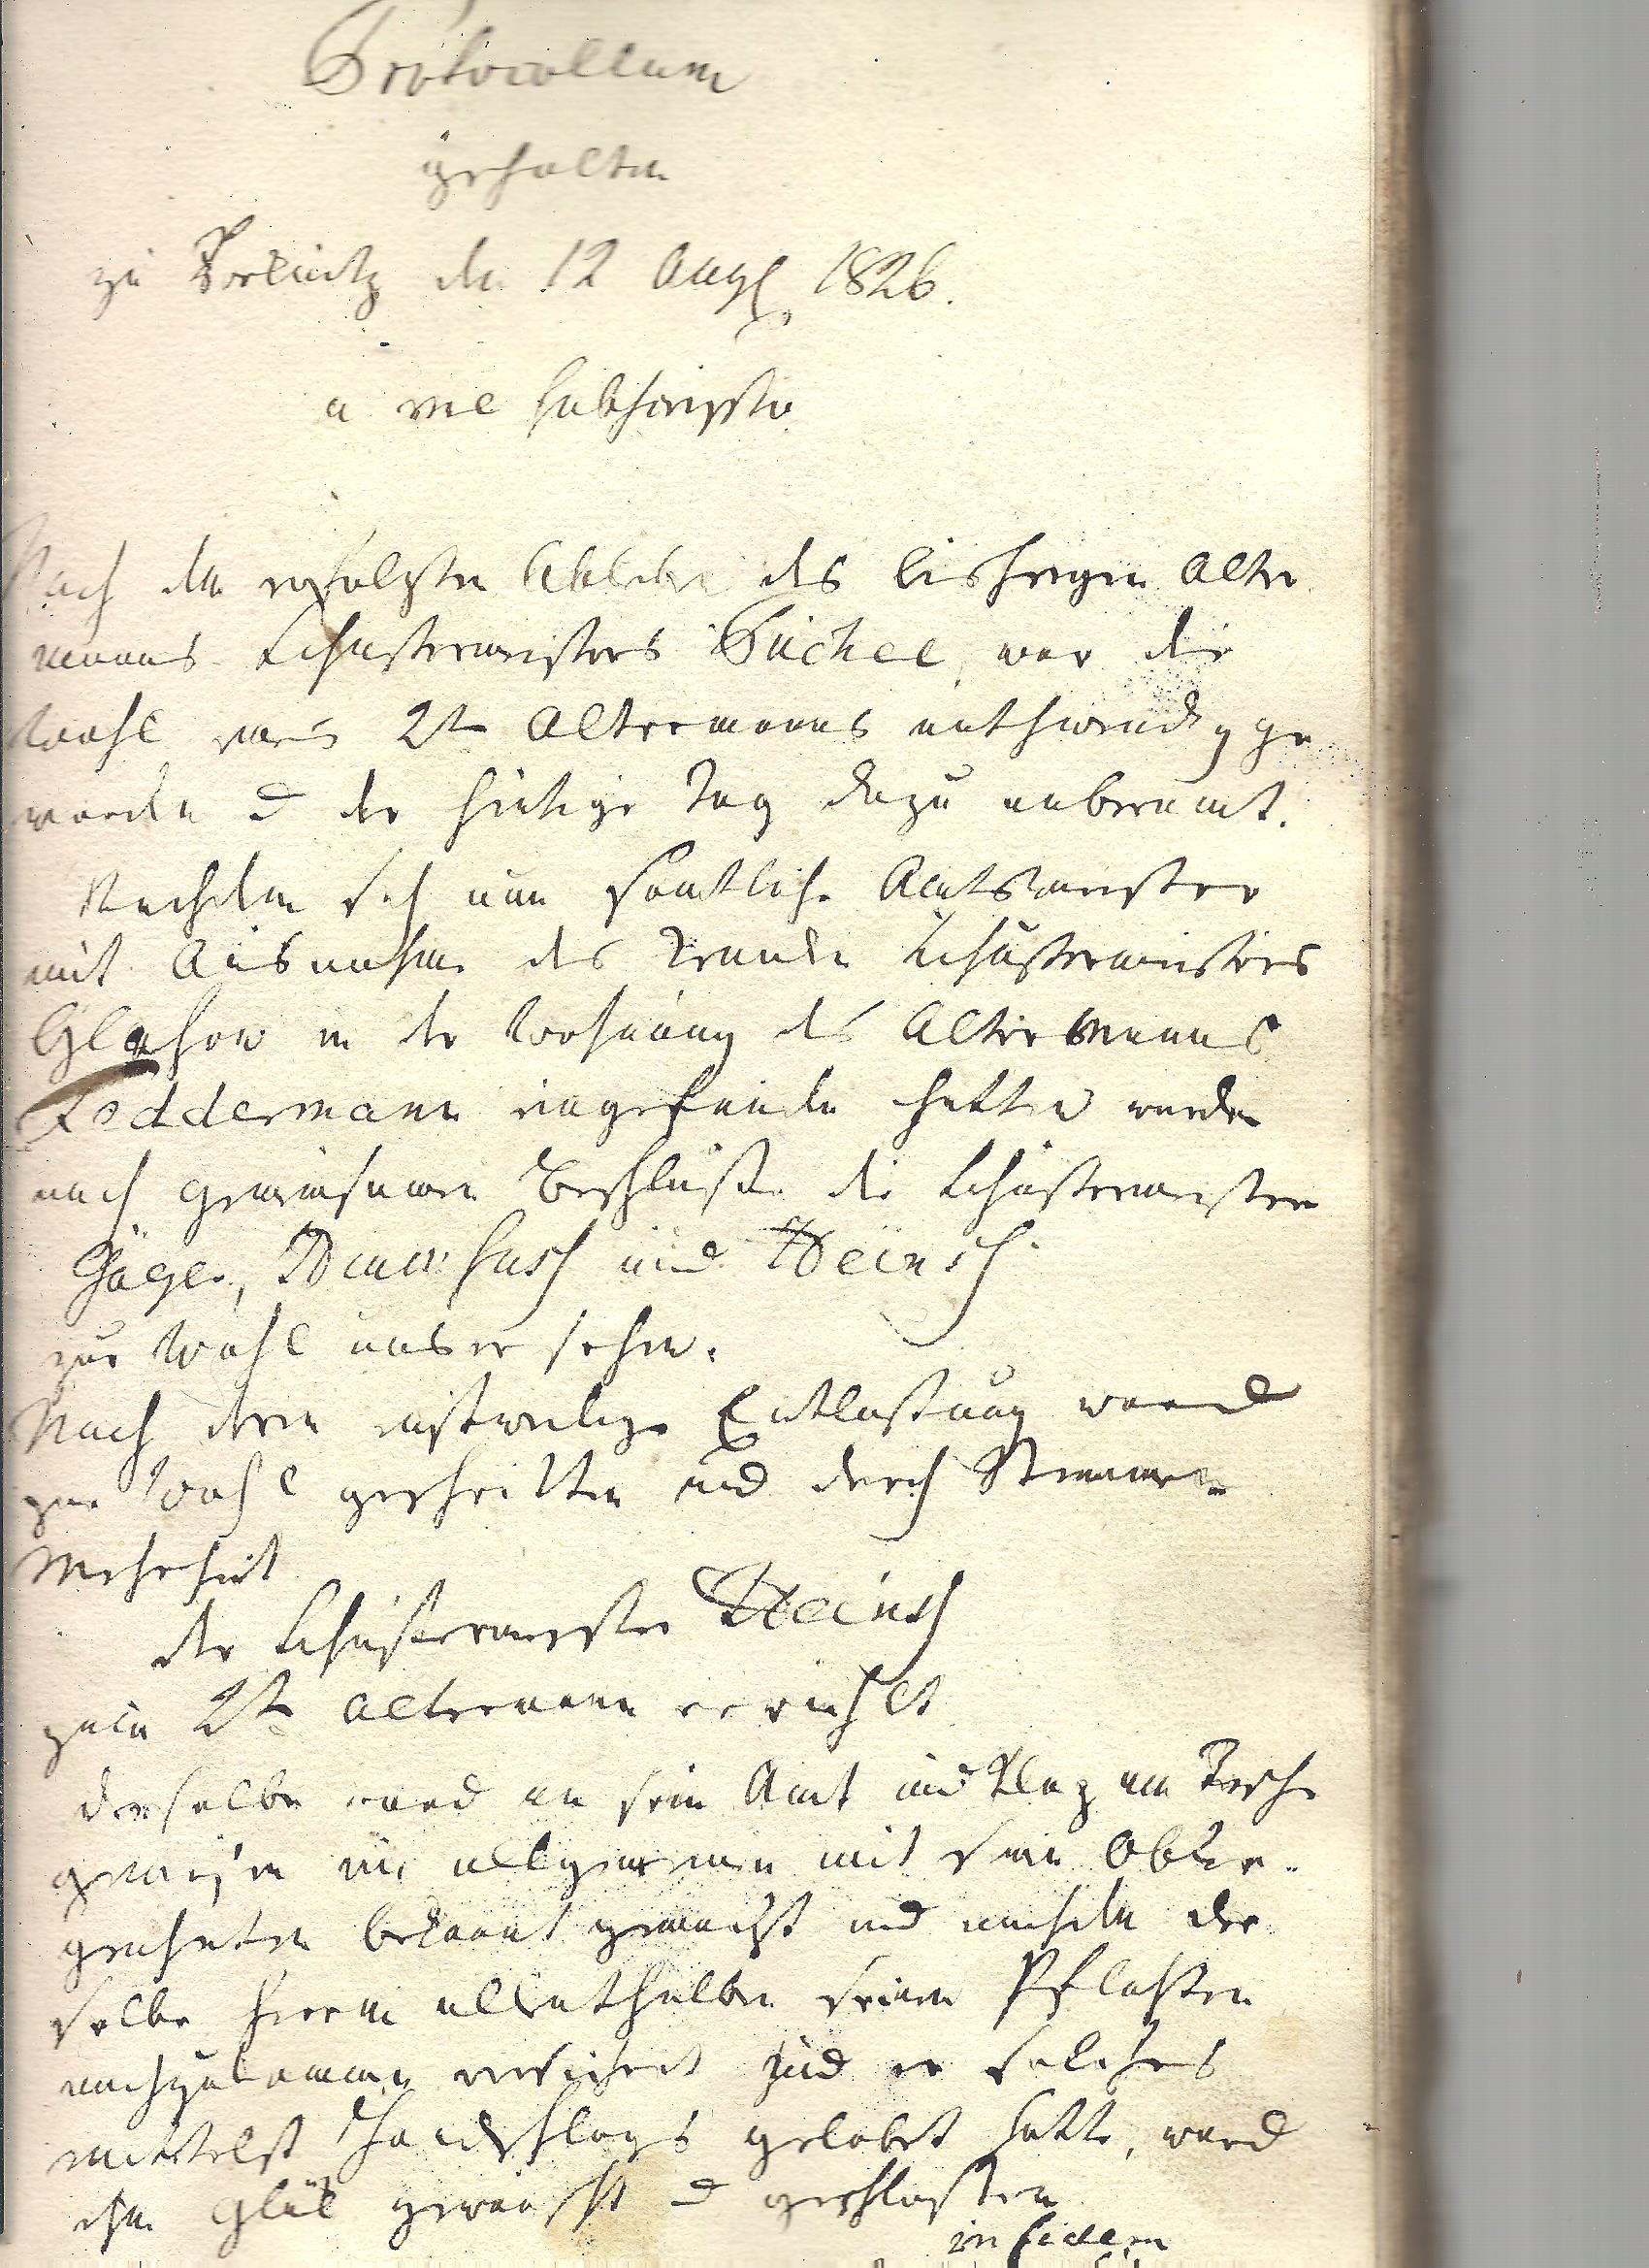 Protocollum
gehalten
zu den 12 Aug 1826.
a me subscripto
Nach dem erfolgten Ableben des bisherigen Alter
manns Schustermeisters Büchel, war die
Wahl eines 2t Altermanns nothwendig ge
worden u der heutige Tag dazu anberaumt.
Nachdem sich nun sämtliche Amtsmeister
mit Ausnahme des kranken Schustermeisters
Glashow in der Wohnung des Altermanns
Loddermann eingefunden hatten wurden
nach gemeinsamen Beschluße die Schustermeister
Jäger, und Heinsch
zur Wahl ausersehen.
Nach deren einstweilige Entlaßung ward
zur Wahl geschritten und durch Stimmen
Mehrheit
der Schustermeister Heinsch
zum 2t Altermann erwählt
derselbe ward in sein Amt und Platz am Tische
gewiesen im allgemeinen mit seinen Oblie-
genheiten bekannt gemacht und nachdem der
selbe hierin allenthalben seinen Pflichten
nachzukommen versichert und er solches
mittelst Handschlags gelobet hatte, ward
ihm Glük gewünscht u geschloßen
in fidem